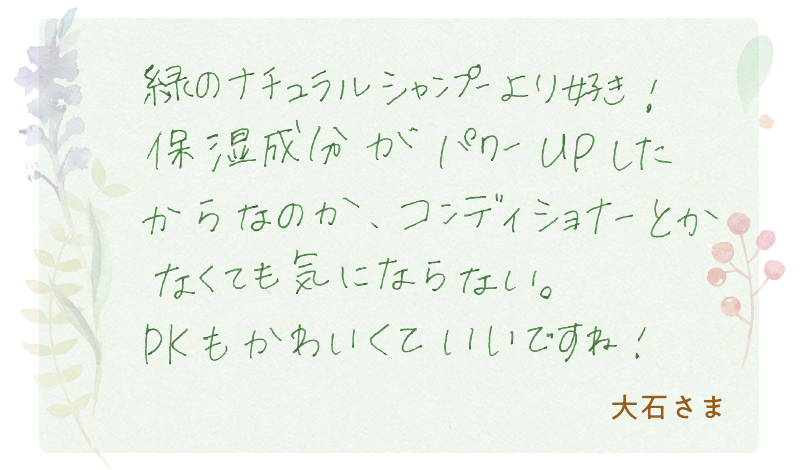 緑のナチュラルシャンプーより好き！
保湿成分がパワーUPした
からなのか、コンディショナーとか
なくても気にならない。
PKもかわいくていいですね！
大石さま